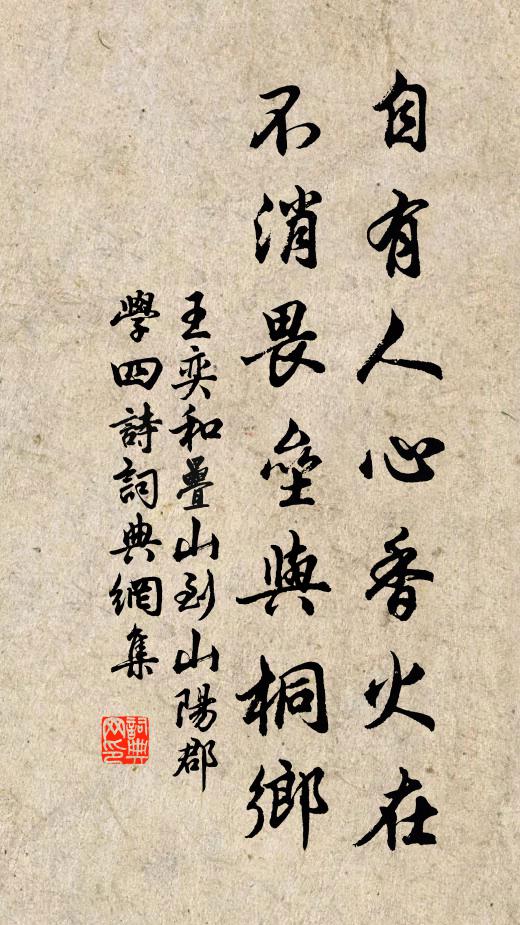 自有人心香火在
不消畏壘與桐鄉
王奕和疊山到山陽郡
學四詩詞典網集
詞典網印